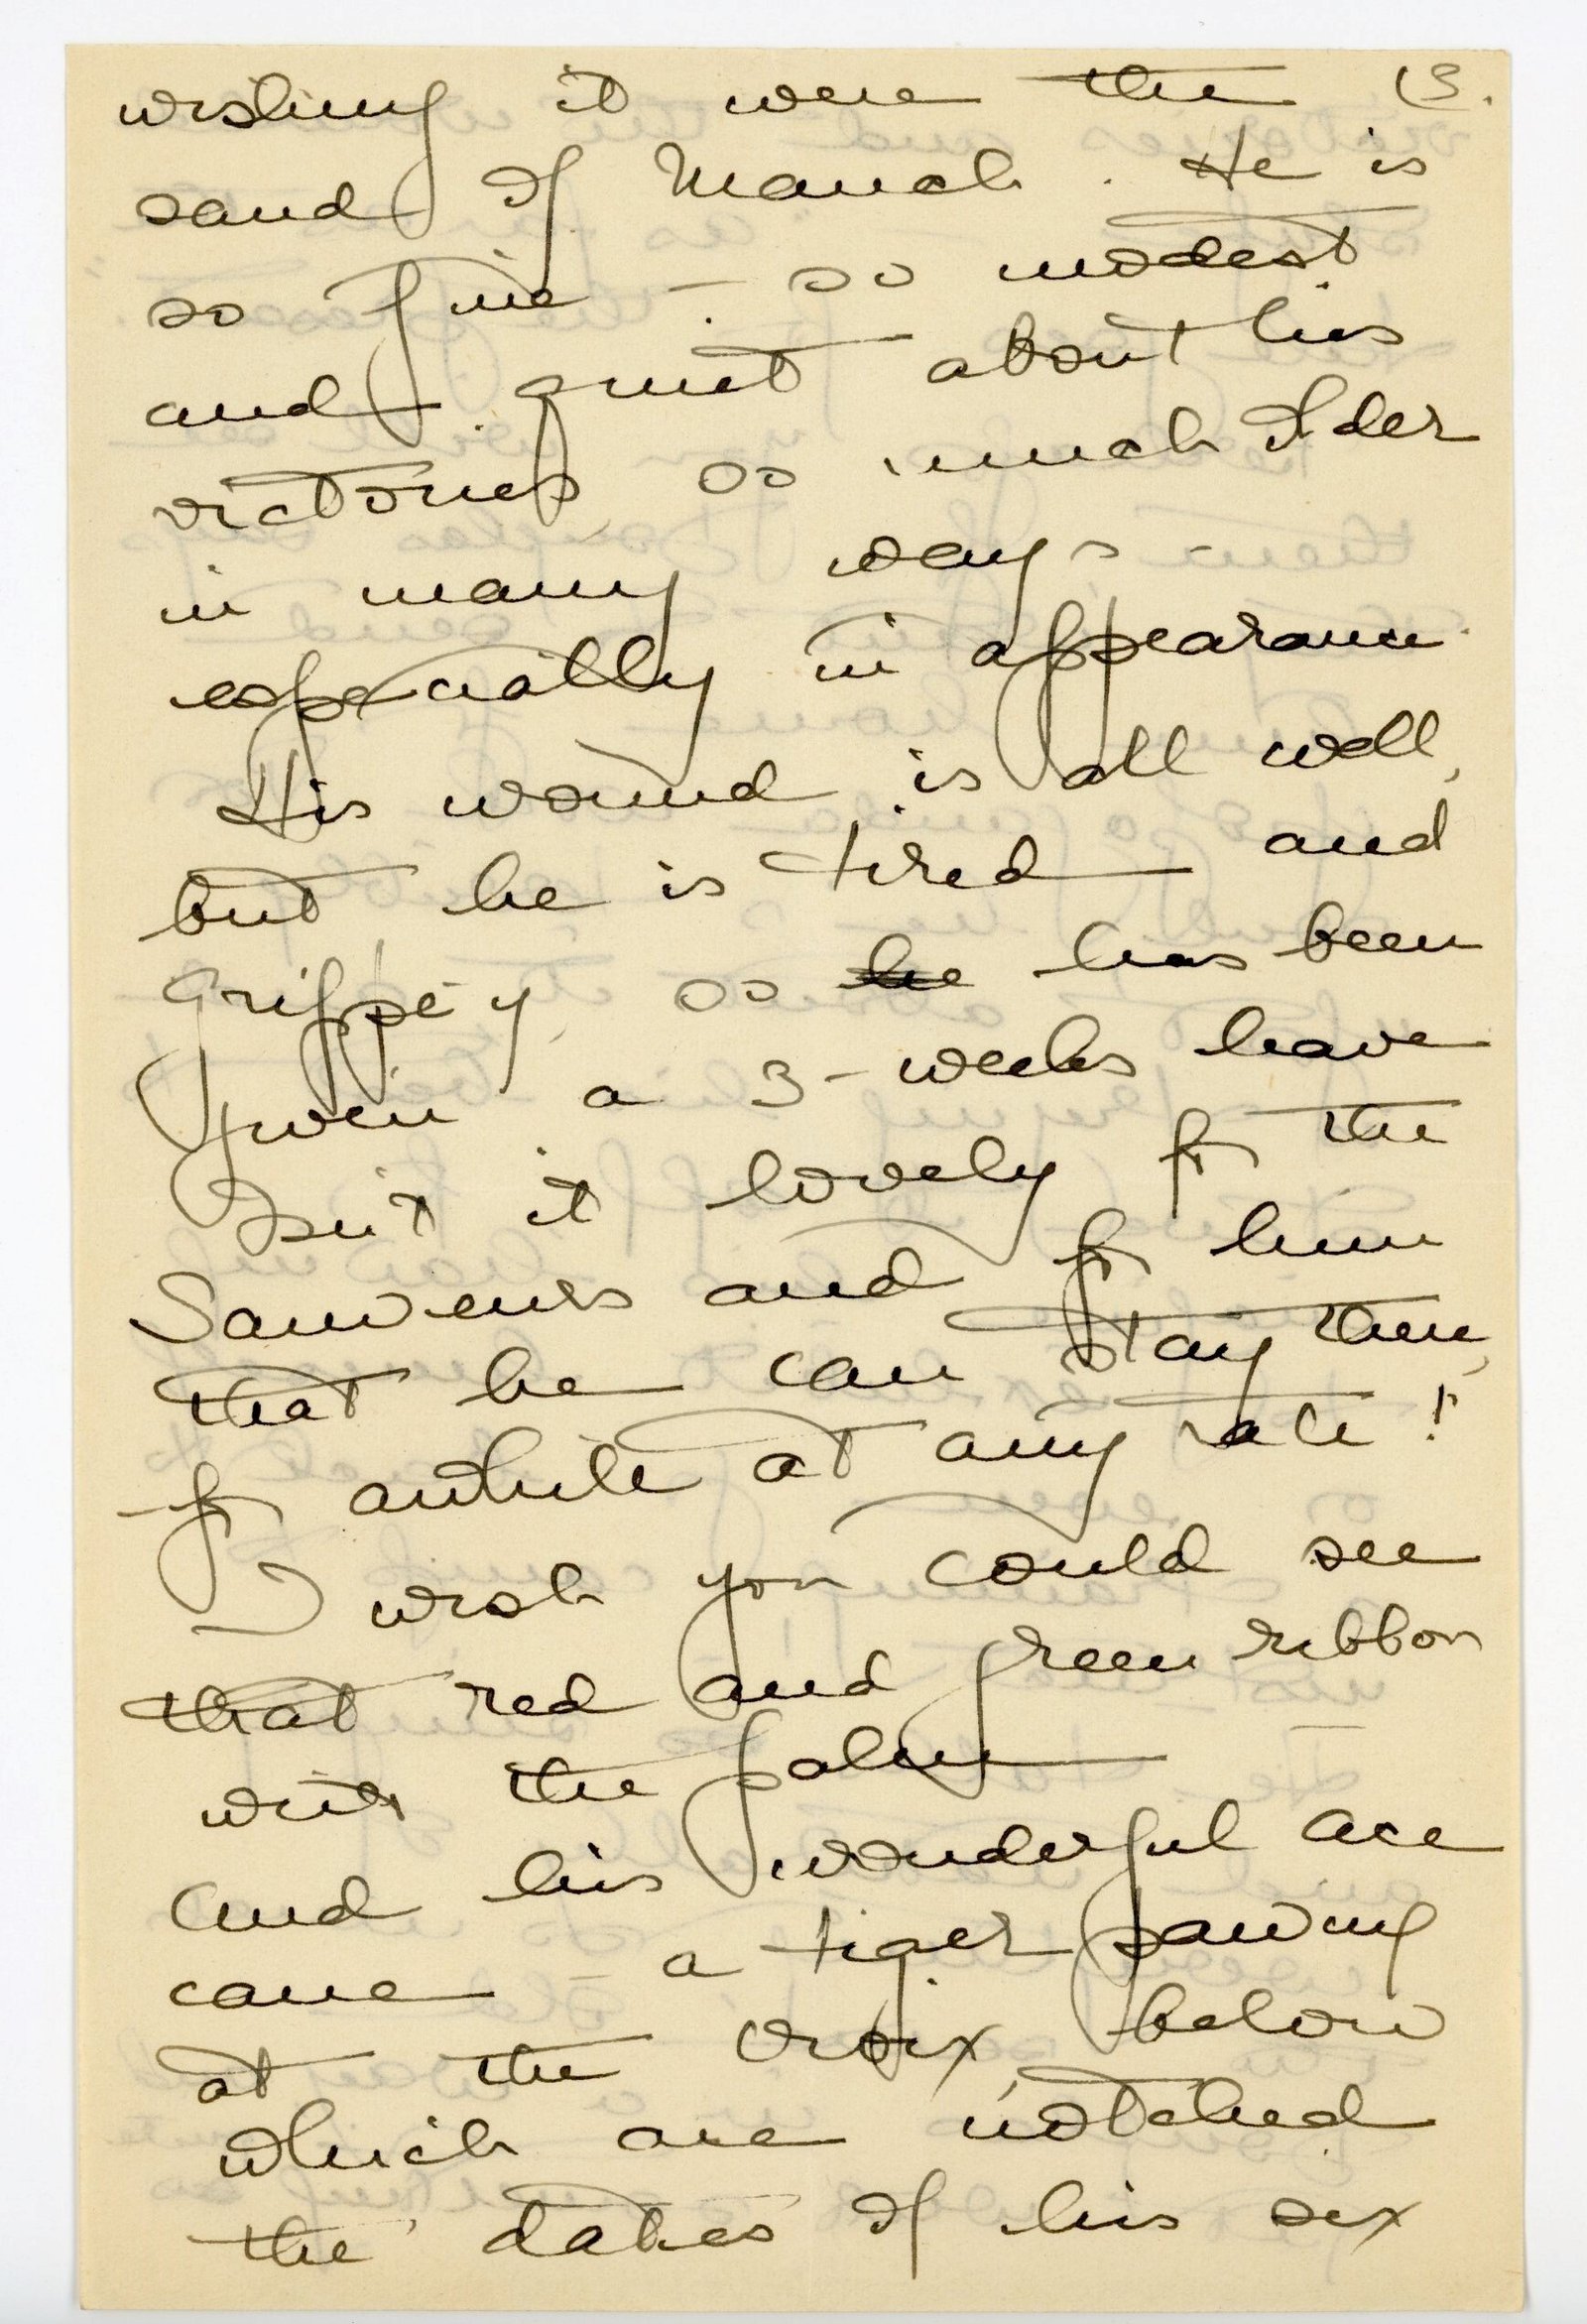 wishing it were the 13.
sand of March. He is
so fine - so modest
and quiet about his
victories, so much older
in many ways
especially in appearance.
His wound is all well,
but he is tired and
grippey, so he has been
given a 3-weeks leave
Isn't it lovely for the
and for him
that he can stay there,
for awhile at any rate!
I wish you could see
that red and green ribbon
with the palm
and his wonderful ace
cane - a tiger pawing
at the croix, below
which are notched
the dates of his six